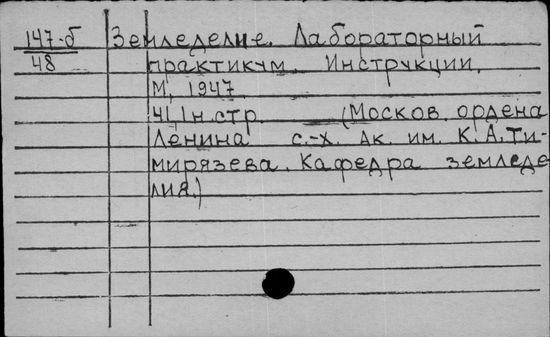 147-б Земледелие. Лабораторный
48 практикум. Инструкции.
М, 1947
41, 1н.стр. (Москов. ордена
Ленина с.-х. ак. им. К.А.Ти-
мирязева. Кафедра земледе-
лия.)